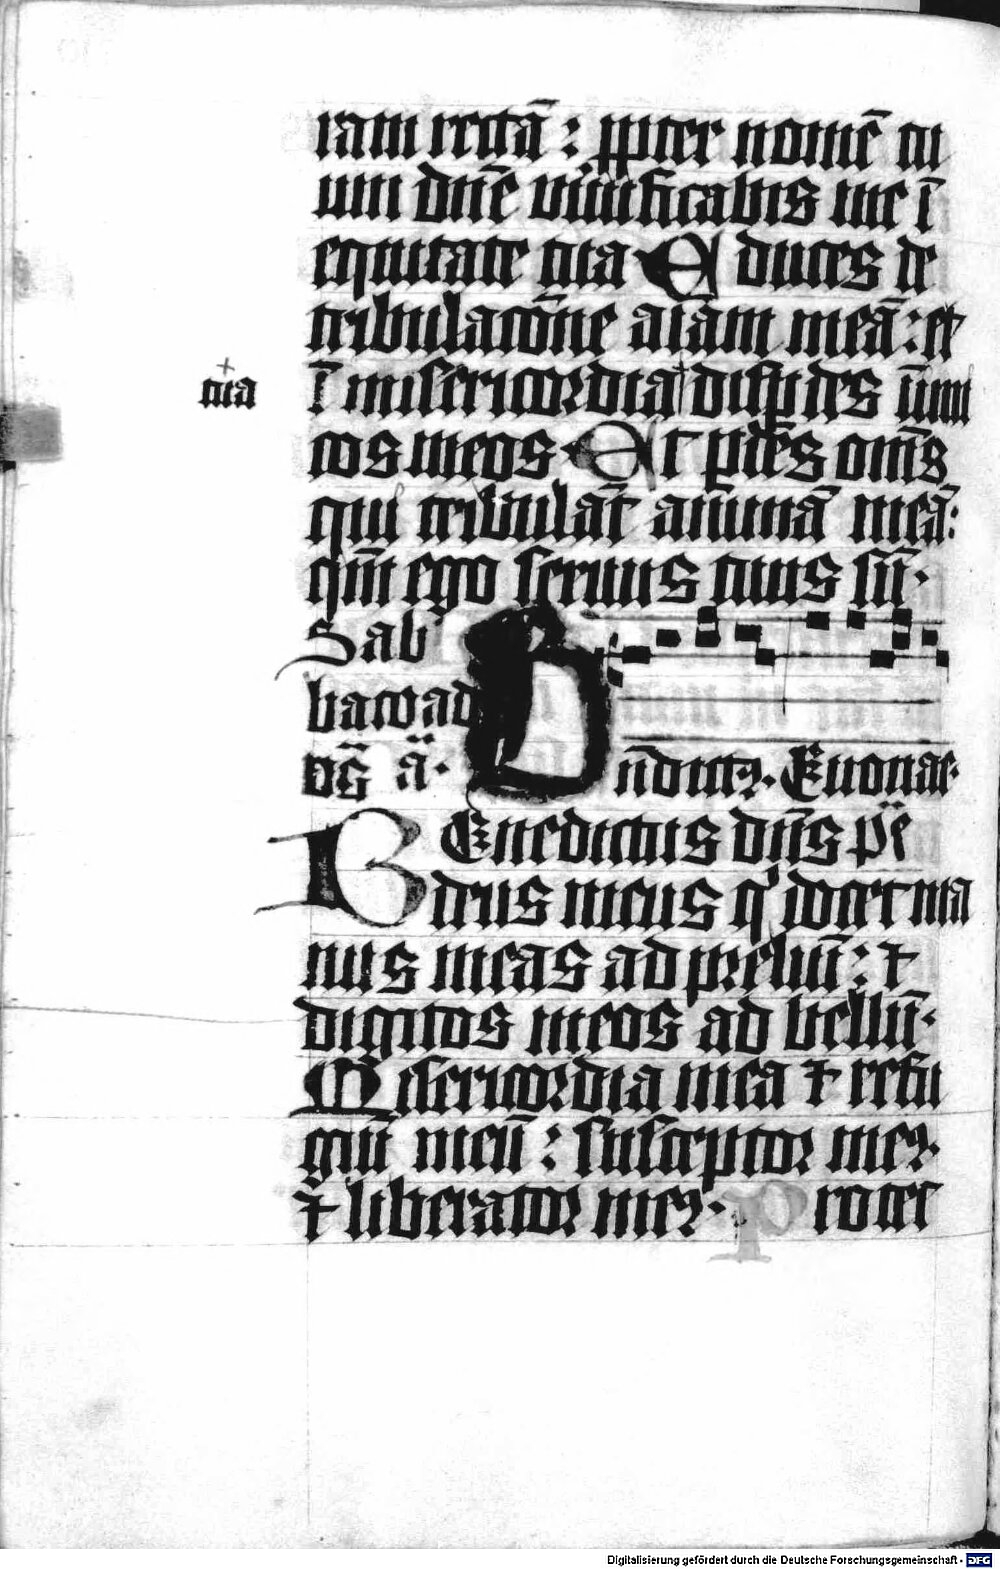 ram rectā : ꝓpter nomē tu
um dn̄e viuificabis me ī
equitate tua Educes de
tribulacōne aīam meā : et
tua
ī misericordia dispdes inimi
cos meos Et pdes om̄s
qui tribulāt animā meā :
qm̄ ego seruus tuus sū ·
Sab
bato ad
B
vc̄ ā ·
n̄dictꝰ · Euouae ·
BEnedictus dn̄s
deus meus qͥ docet ma
nus meas ad preliū : ⁊
digitos meos ad bellū ·
Misericordia mea ⁊ refu
giū meū : susceptor meꝰ
⁊ liberator meꝰ · Protec
Digitalisierung gefördert durch die Deutsche Forschungsgemeinschaft - DFG